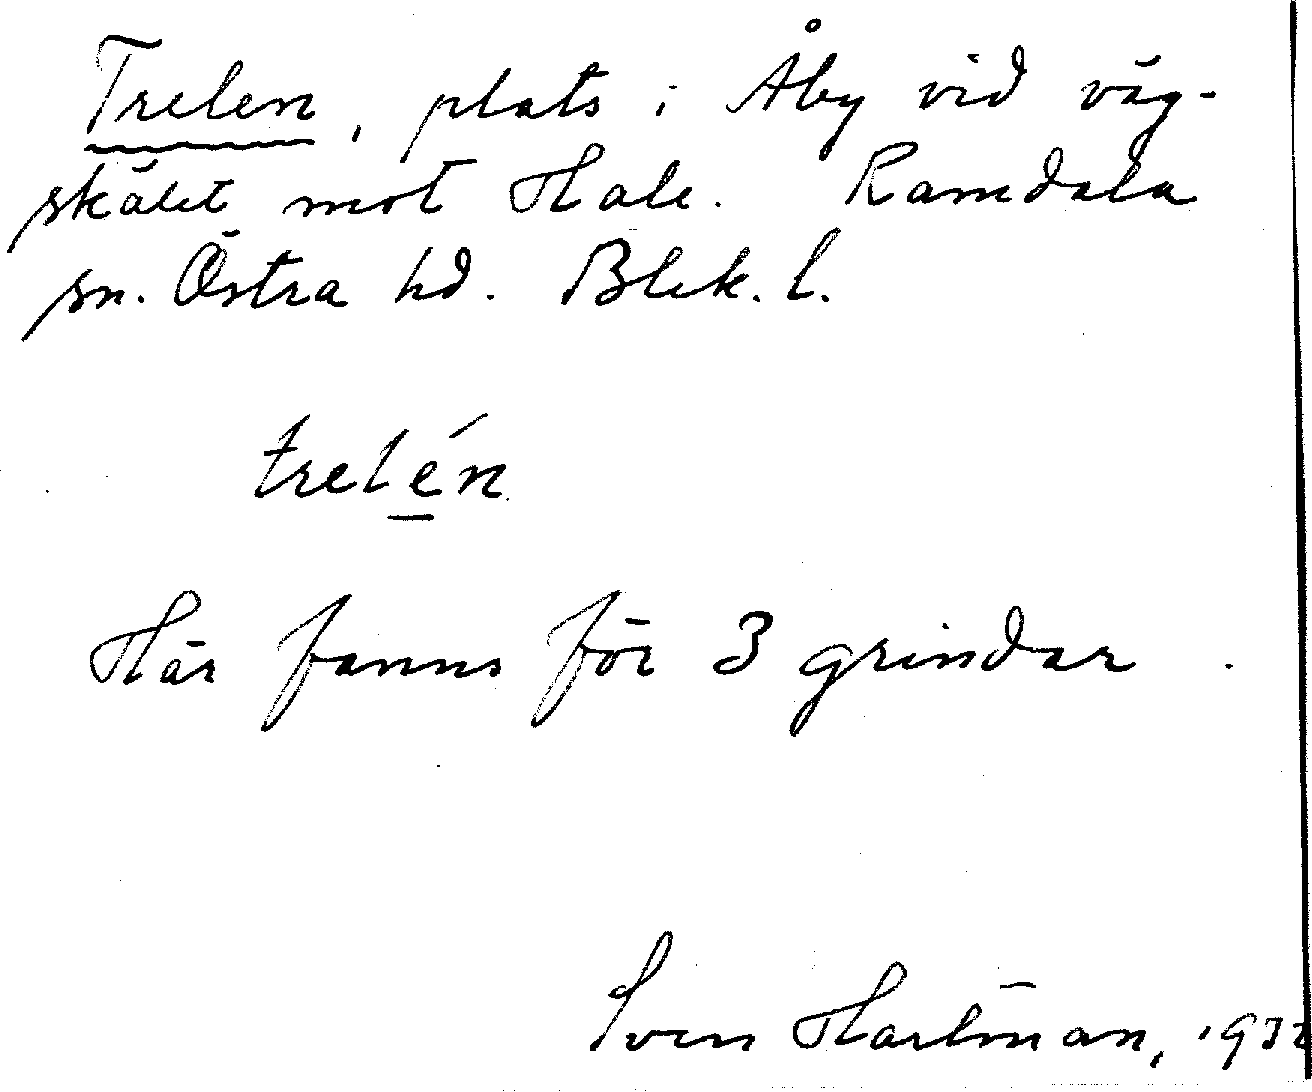 Trelen, plats i Åby vid väg-
skälet mot Hale. Ramdala
sn. Östra hd. Blek. l.
trelén
Här fanns för 3 grindar.
Sven Hartman̄, 1932